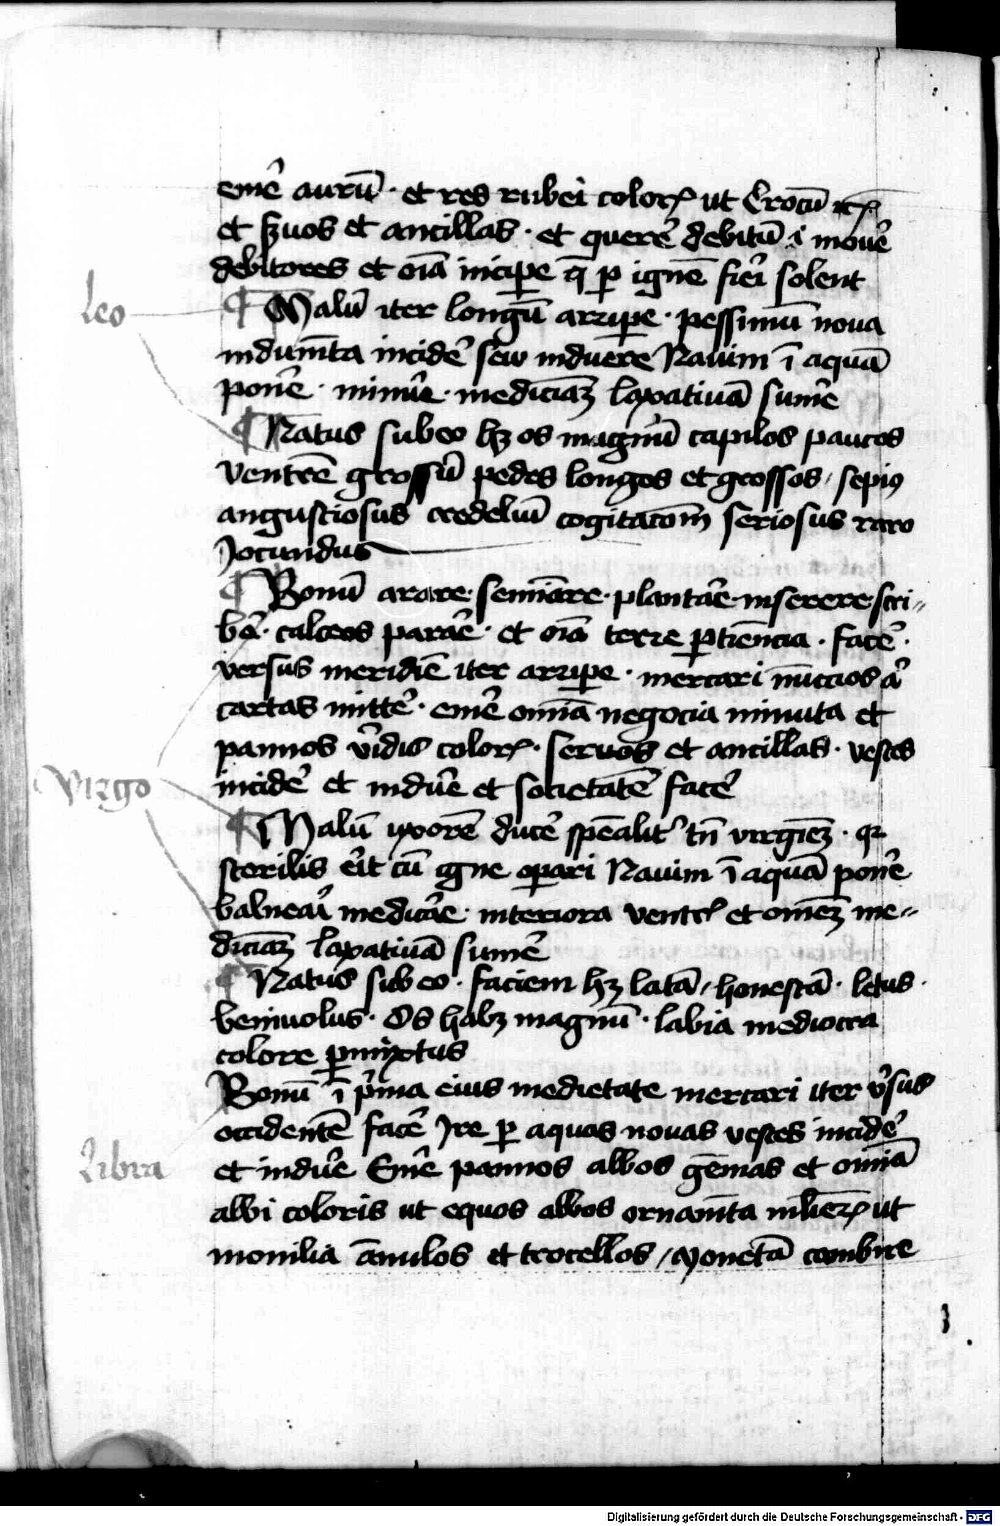 emē aurū · et res rubei color ut Crocū etc
et suos et ancillas · et querē debitū i mouē
debitores et oīa incipe q̄ p ignē fieri solent
Leo
¶ Malū iter longū arripe · pessimū noua
indumēta incidē seu induere Nauim ī aquā
ponē · minuē · medicīaꝫ laxatiuā sumē
¶ Natus sub eo hꝫ os magnū capilos paucos
Ventrē grossū pedes longos et grossos / sepius
angustiosus crudeliū cogitacōm seriosus raro
Jocundus
¶ Bonū arare · semīare · plantāe · inserere scri〃
bē · calceos parāe · et oīa terre ptinēcia · facē ·
versus meridiē iter arripe · mercari nūccios ā
cartas mittē · emē omīa negocia minuta et
pannos viridis color · seruos et ancillas · vestes
incidē et induē et societatē facē
Virgo
¶ Malū uxorē ducē spēalit tn̄ virgīeꝫ · qꝛ
sterilis erit cū igne opari Nauim ī aquā ponē
balneari medicāe · interiora ventr̄ et omēꝫ me〃
dicīaꝫ laxatiuā sumē
¶ Natus sub eo · faciem hꝫ latā / honestā · letus ·
beniuolus · Os habꝫ magnū · labia mediocra
colore pmixtus
Bonū ī pma eius medietate mercari iter vsus
occidentē facē Ire p aquas nouas vestes incidē
Libra
et induē Emē pannos albos gēmas et omīa
albi coloris ut equos albos ornamēta mlieꝝ ut
monilia ānulos et crocellos / Monetā cambire
Digitalisierung gefördert durch die Deutsche Forschungsgemeinschaft - DFG